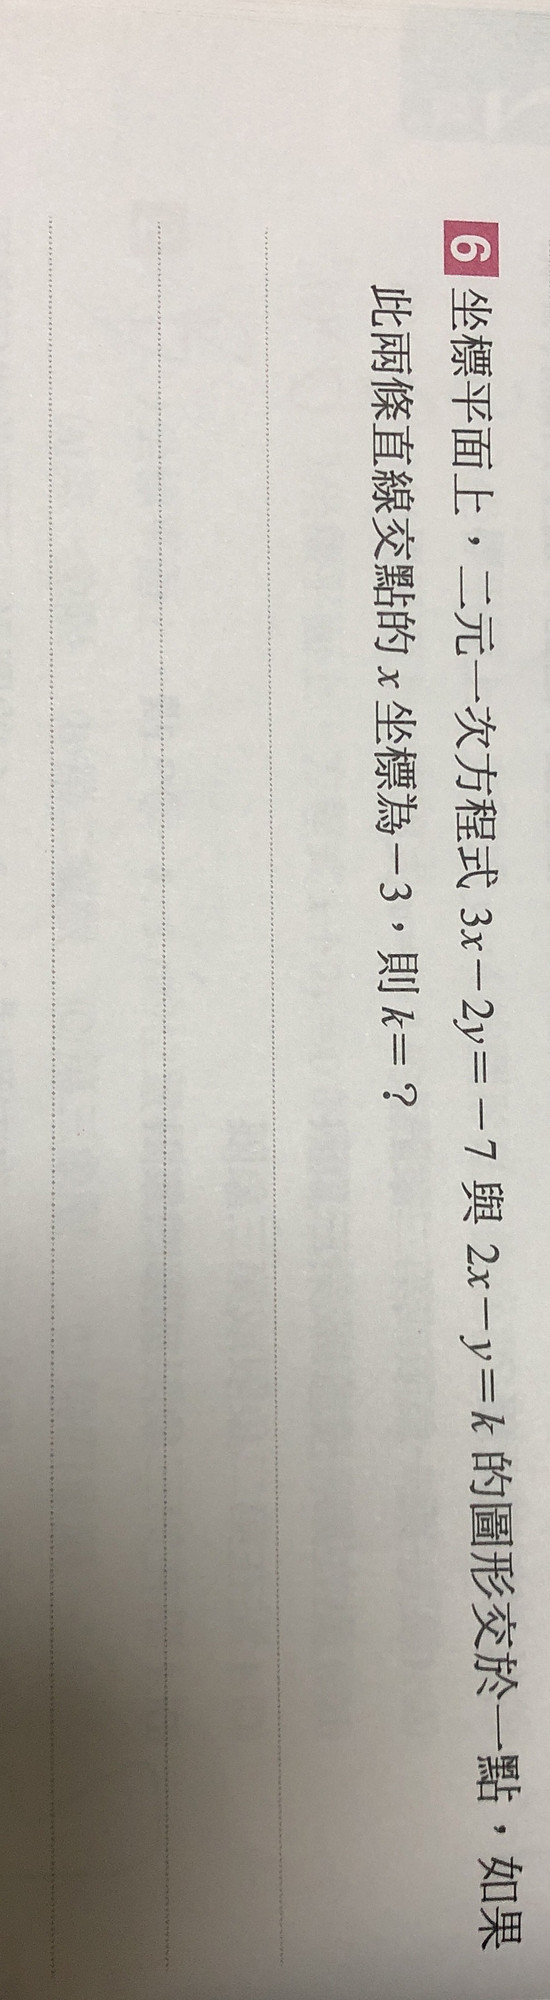 6 坐標平面上，二元一次方程式 3x－2y＝－7 與 2x－y＝k 的圖形交於一點，如果
此兩條直線交點的 x 坐標為－3，則 k＝？